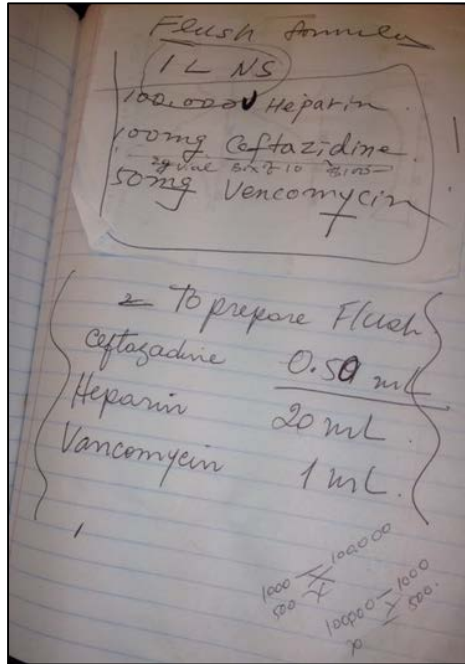 Flush formula
1 L NS
100,000U Heparin.
100mg Ceftazidine.
2g vial Box of 10
50mg Vencomycin
To prepare Flush
Ceftazadine 0.50 mL
Heparin 20 mL.
Vancomycin 1 mL.
1000 100,000
500 X
100,000 — 1000
X 500.